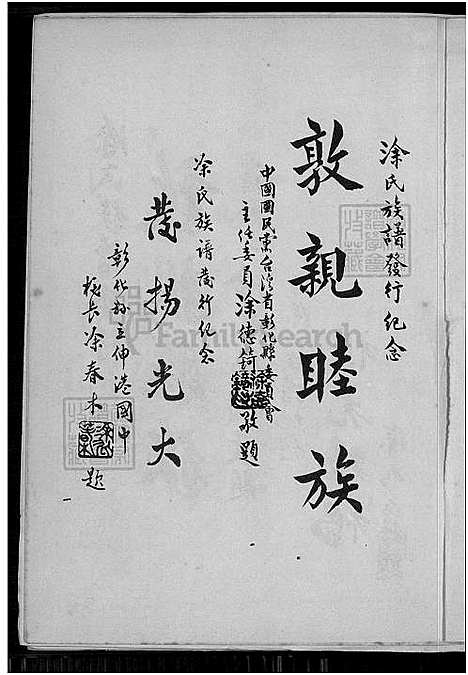 涂氏族譜發行紀念
敦親睦族
中國國民黨台灣省彰化縣委員會
主任委員涂德錡敬題
涂氏族譜發行紀念
發揚光大
彰化縣立伸港國中
校長涂春木題
FamilySearch